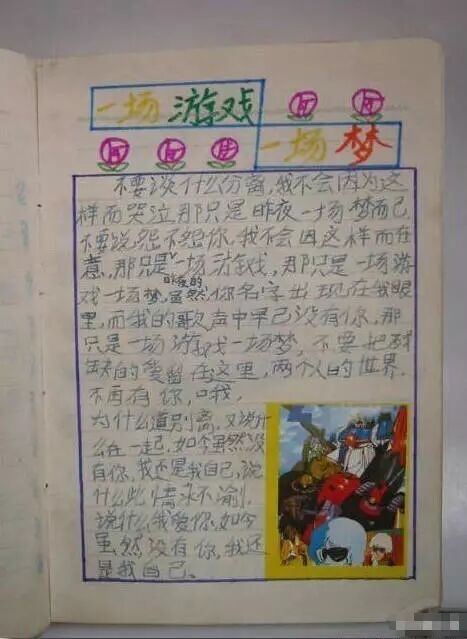 一场游戏
一场梦
不要谈什么分离,我不会因为这
样而哭泣,那只是昨夜一场梦而已
不要说怨不怨你,我不会因这样而在
意,那只是一场游戏,那只是一场游
戏一场梦,虽然昨夜的你名字出现在我眼
里,而我的歌声中早已没有你,那
只是一场游戏一场梦,不要把残
缺的爱留在这里,两个人的世界.
不再有你,哦,
为什么道别离,又说什
么在一起,如今虽然没
有你,我还是我自己,说
什么此情永不渝,
说什么我爱你,如今
虽然没有你,我还
是我自己、